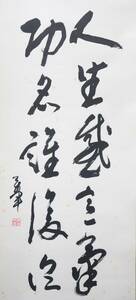 人生感意氣
功名誰復論